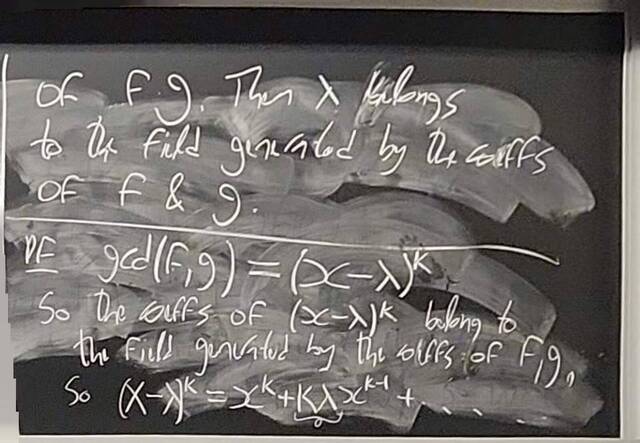 of f, g. Then λ belongs
to the field generated by the coeffs
of f & g.
Pf gcd(f,g) = (x-λ)^k
So the coeffs of (x-λ)^k belong to
the field generated by the coeffs of f,g,
So (x-λ)^k = x^k + kλx^{k-1} + . . . . .